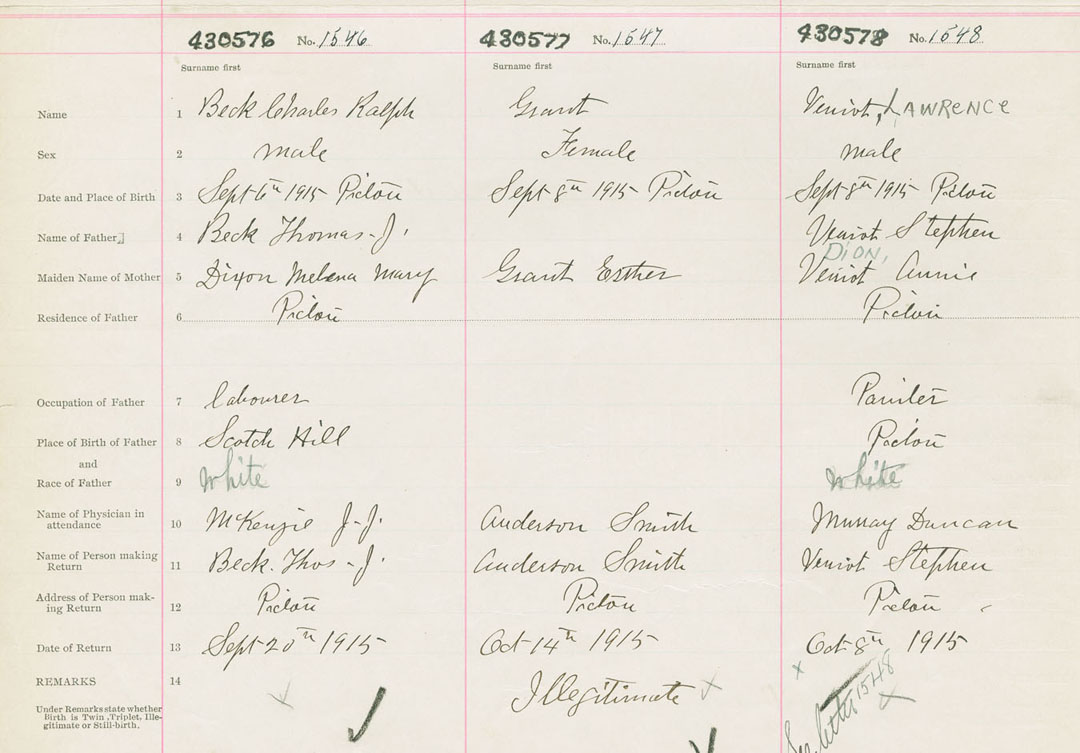 430576 No. 1546 430577 No. 1547 430578 No. 1548
Surname first Surname first Surname first
Name 1 Beck Charles Ralph Grant Veniot, LAWRENCE
Sex 2 male Female male
Date and Place of Birth 3 Sept 6th 1915 Pictou Sept 8th 1915 Pictou Sept 8th 1915 Pictou
Name of Father 4 Beck Thomas J. Veniot Stephen
DION,
Maiden Name of Mother 5 Dixon Melena Mary Grant Esther Veniot Annie
Residence of Father 6 Pictou Pictou
Occupation of Father 7 labourer Painter
Place of Birth of Father 8 Scotch Hill Pictou
and
Race of Father 9 white white
Name of Physician in
attendance 10 McKenzie J-J. Anderson Smith Murray Duncan
Name of Person making
Return 11 Beck. Thos-J. Anderson Smith Veniot Stephen
Address of Person mak-
ing Return 12 Pictou Pictou Pictou
Date of Return 13 Sept 20th 1915 Oct 14th 1915 Oct 8th 1915
REMARKS 14 Illegitimate
See letter 1548
Under Remarks state whether
Birth is Twin, Triplet, Ille-
gitimate or Still-birth.